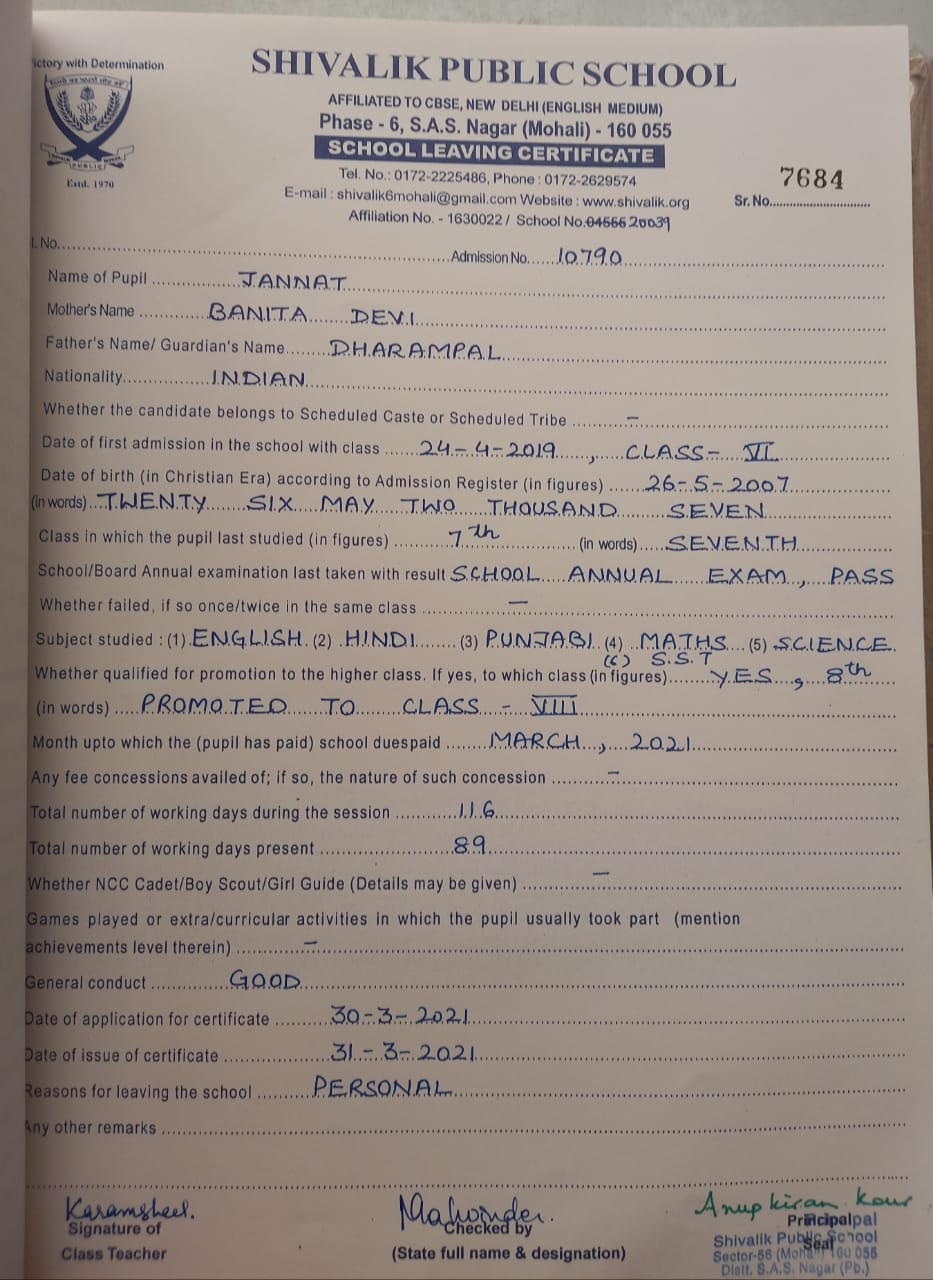 ictory with Determination
SHIVALIK PUBLIC SCHOOL
AFFILIATED TO CBSE, NEW DELHI (ENGLISH MEDIUM)
Phase - 6, S.A.S. Nagar (Mohali) - 160 055
SCHOOL LEAVING CERTIFICATE
PUBLIC
Estd. 1970
Tel. No.: 0172-2225486, Phone : 0172-2629574
E-mail : shivalik6mohali@gmail.com Website : www.shivalik.org
Affiliation No. - 1630022 / School No. 04566 20039
7684
Sr. No.
I. No. Admission No. 10790
Name of Pupil JANNAT
Mother's Name BANITA DEVI
Father's Name/ Guardian's Name DHARAMPAL
Nationality INDIAN
Whether the candidate belongs to Scheduled Caste or Scheduled Tribe –
Date of first admission in the school with class 24-4-2019, CLASS- VI
Date of birth (in Christian Era) according to Admission Register (in figures) 26-5-2007
(in words) TWENTY SIX MAY TWO THOUSAND SEVEN
Class in which the pupil last studied (in figures) 7th (in words) SEVENTH
School/Board Annual examination last taken with result SCHOOL ANNUAL EXAM, PASS
Whether failed, if so once/twice in the same class –
Subject studied : (1) ENGLISH (2) HINDI (3) PUNJABI (4) MATHS (5) SCIENCE
(6) S.S.T
Whether qualified for promotion to the higher class. If yes, to which class (in figures) YES, 8th
(in words) PROMOTED TO CLASS - VIII
Month upto which the (pupil has paid) school duespaid MARCH, 2021
Any fee concessions availed of; if so, the nature of such concession –
Total number of working days during the session 116
Total number of working days present 89
Whether NCC Cadet/Boy Scout/Girl Guide (Details may be given) –
Games played or extra/curricular activities in which the pupil usually took part (mention
achievements level therein) –
General conduct GOOD
Date of application for certificate 30-3-2021
Date of issue of certificate 31-3-2021
Reasons for leaving the school PERSONAL
Any other remarks
Karamsheel.
Signature of
Class Teacher
Mahender.
Checked by
(State full name & designation)
Anup kiran Kour
Principal
Seal
Principal
Shivalik Public School
Sector-56 (Mohali) 160 055
Distt. S.A.S. Nagar (Pb.)